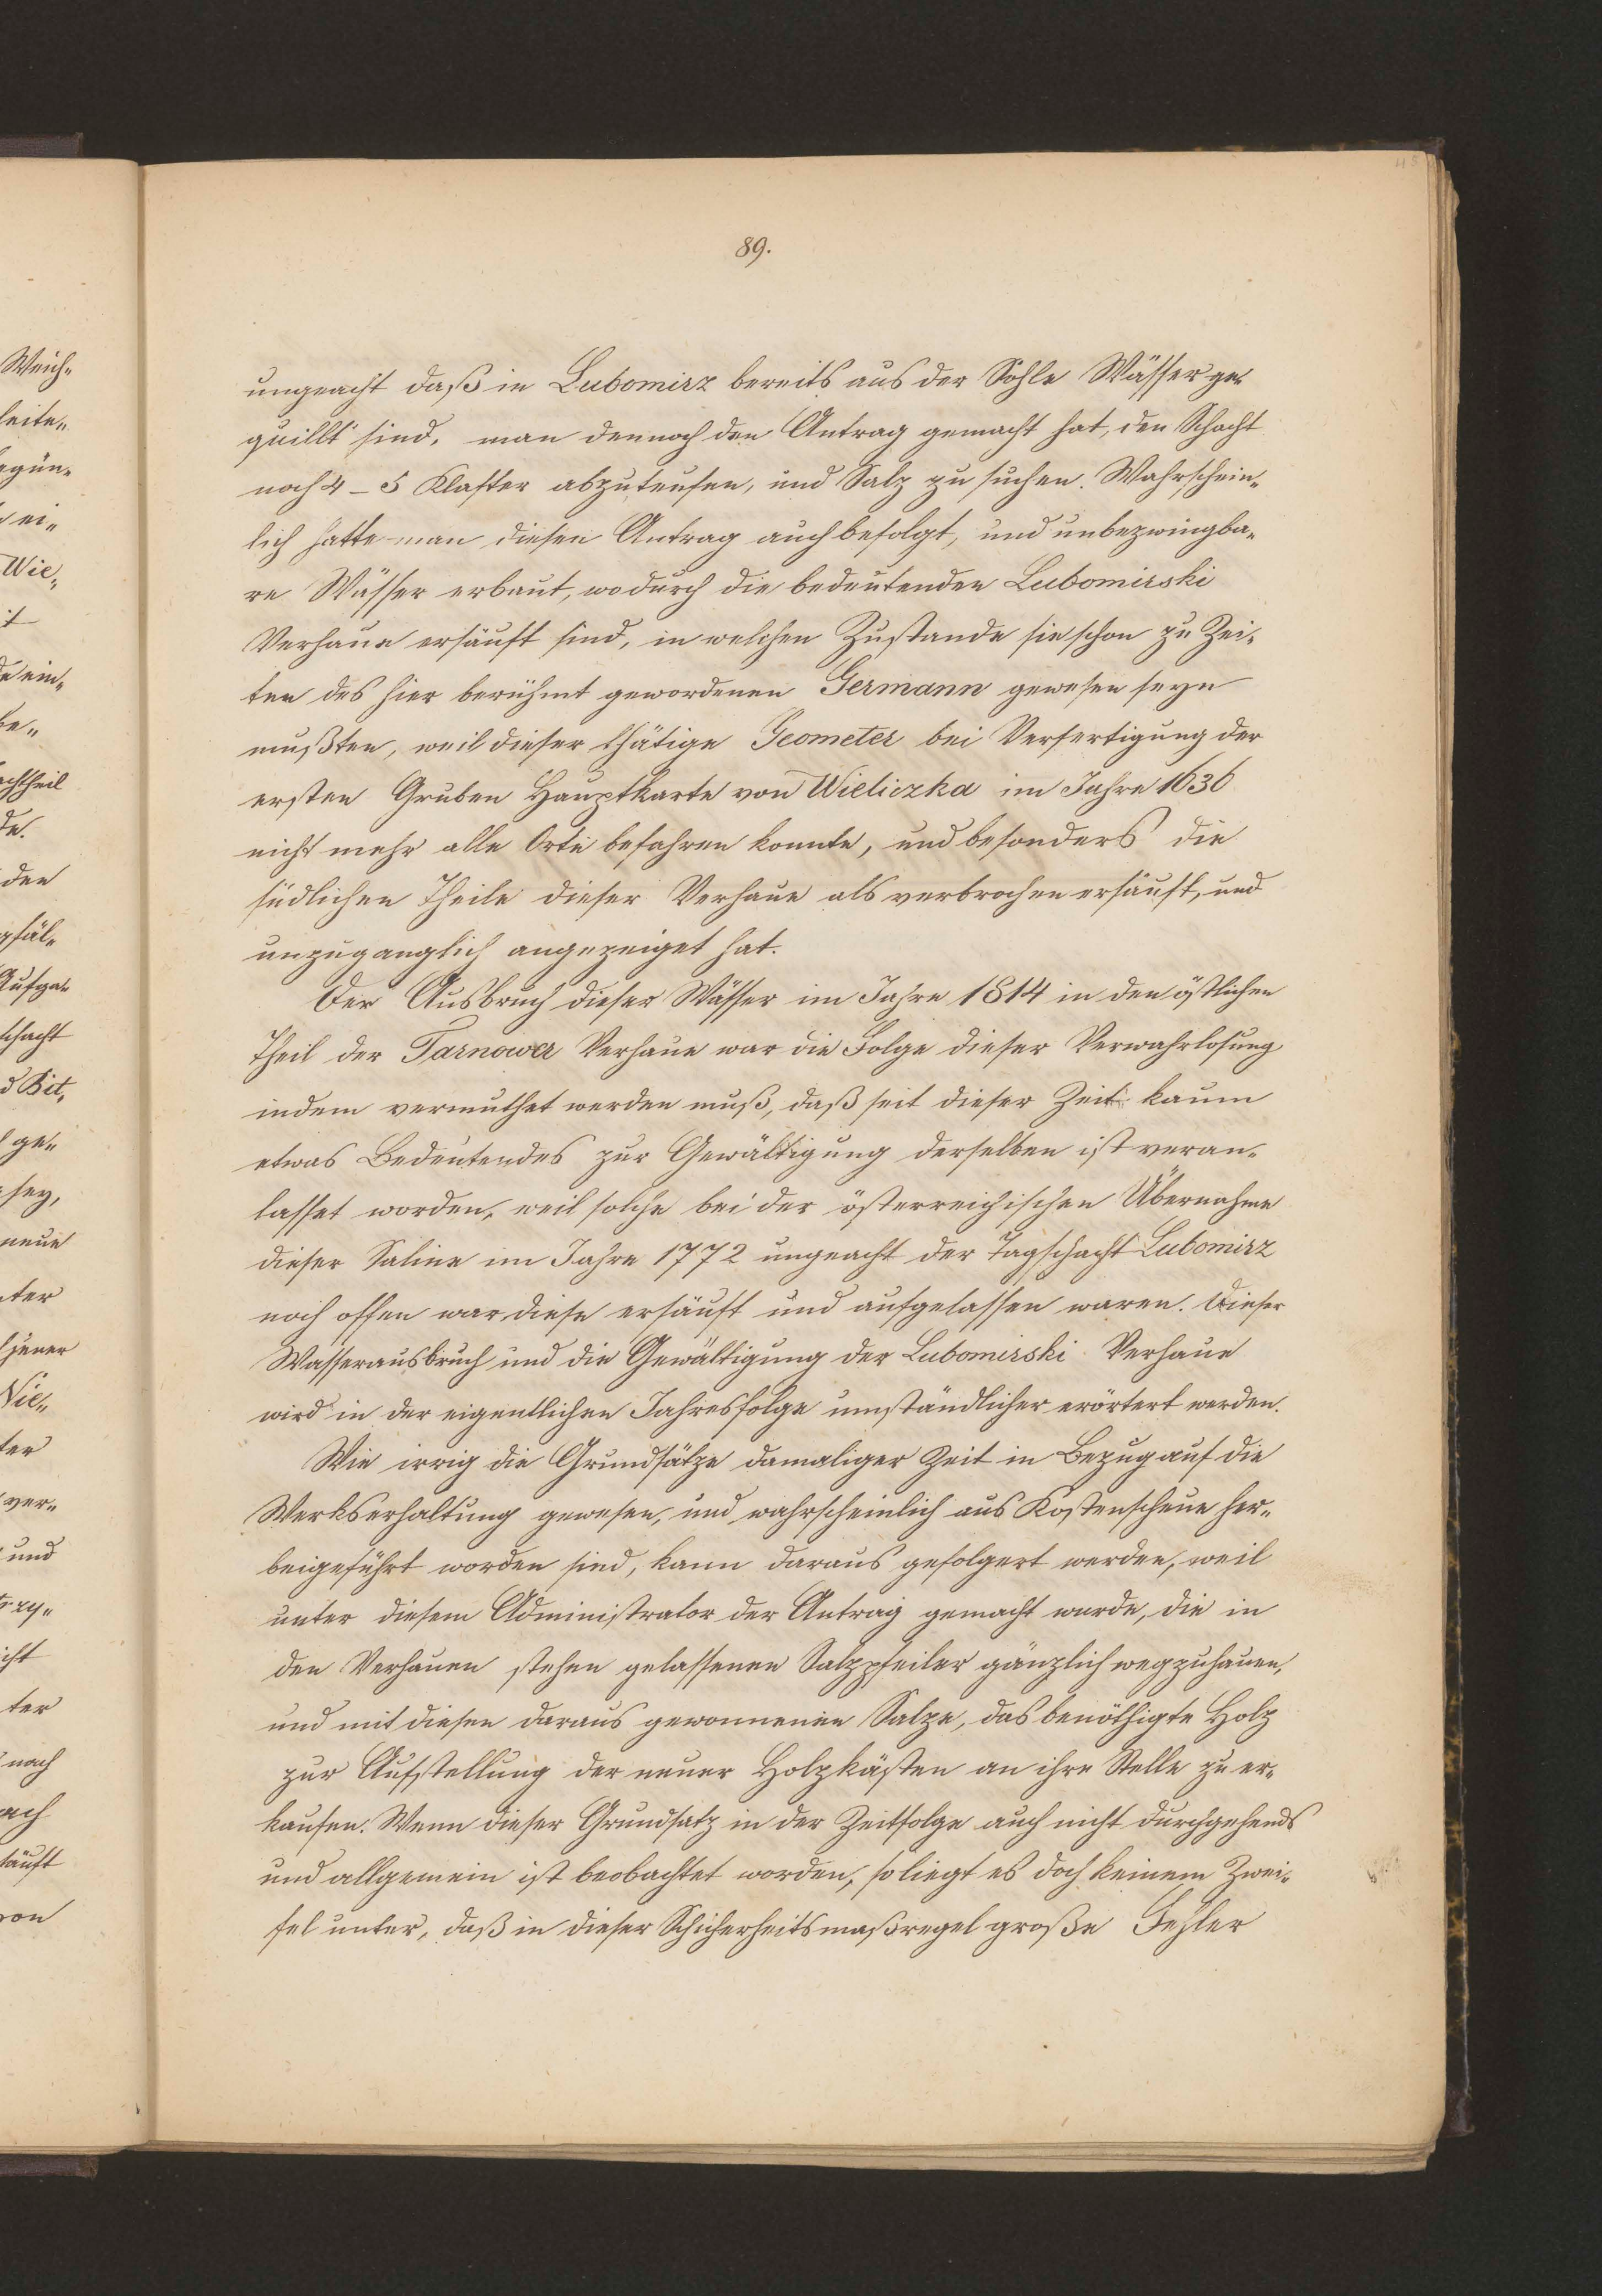 89.
ungeacht daß in Lubomirz bereits aus der Sohle Wässer ge-
quillt sind, man dennoch den Antrag gemacht hat, den Schacht
noch 4 – 5 Klafter abzuteufen, und Salz zu suchen. Wahrschein-
lich hatte man diesen Antrag auch befolgt, und unbezwingba-
re Wässer erbaut, wodurch die bedeutenden Lubomirski
Verhaue ersäuft sind, in welchen Zustande sie schon zu Zei-
ten des hier berühmt gewordenen Germann gewesen seyn
mußten, weil dieser thätige Geometer bei Verfertigung der
ersten Gruben Hauptkarte von Wieliczka im Jahre 1636
nicht mehr alle Orte befahren konnte, und besonders die
südlichen Theile dieser Verhaue als verbrochen ersäuft, und
unzuganglich angezeiget hat.
Der Ausbruch dieser Wässer im Jahre 1814 in den östlichen
Theil der Tarnower Verhaue war die Folge dieser Verwahrlosung
indem vermuthet werden muß, daß seit dieser Zeit kaum
etwas Bedeutendes zur Gewältigung derselben ist veran-
lasset worden, weil solche bei der österreichischen Übernahme
dieser Saline im Jahre 1772 ungeacht der Tagschacht Lubomirz
noch offen war, diese ersäuft und aufgelassen waren. Dieser
Wasserausbruch und die Gewältigung der Lubomirski Verhaue
wird in der eigentlichen Jahresfolge umständlicher erörtert werden.
Wie irrig die Grundsätze damaliger Zeit in Bezug auf die
Werkserhaltung gewesen, und wahrscheinlich aus Kostenscheue her-
beigeführt worden sind, kann daraus gefolgert werden, weil
unter diesem Administrator der Antrag gemacht wurde, die in
den Verhauen stehen gelassenen Salzpfeiler gänzlich wegzuhauen,
und mit diesen daraus gewonnenen Salze, das benöthigte Holz
zur Aufstellung der neuer Holzkästen an ihre Stelle zu er-
kaufen. Wenn dieser Grundsatz in der Zeitfolge auch nicht durchgehends
und allgemein ist beobachtet worden, so liegt es doch keinem Zwei-
fel unter, daß in dieser Schicherheitsmaßregel große Fehler